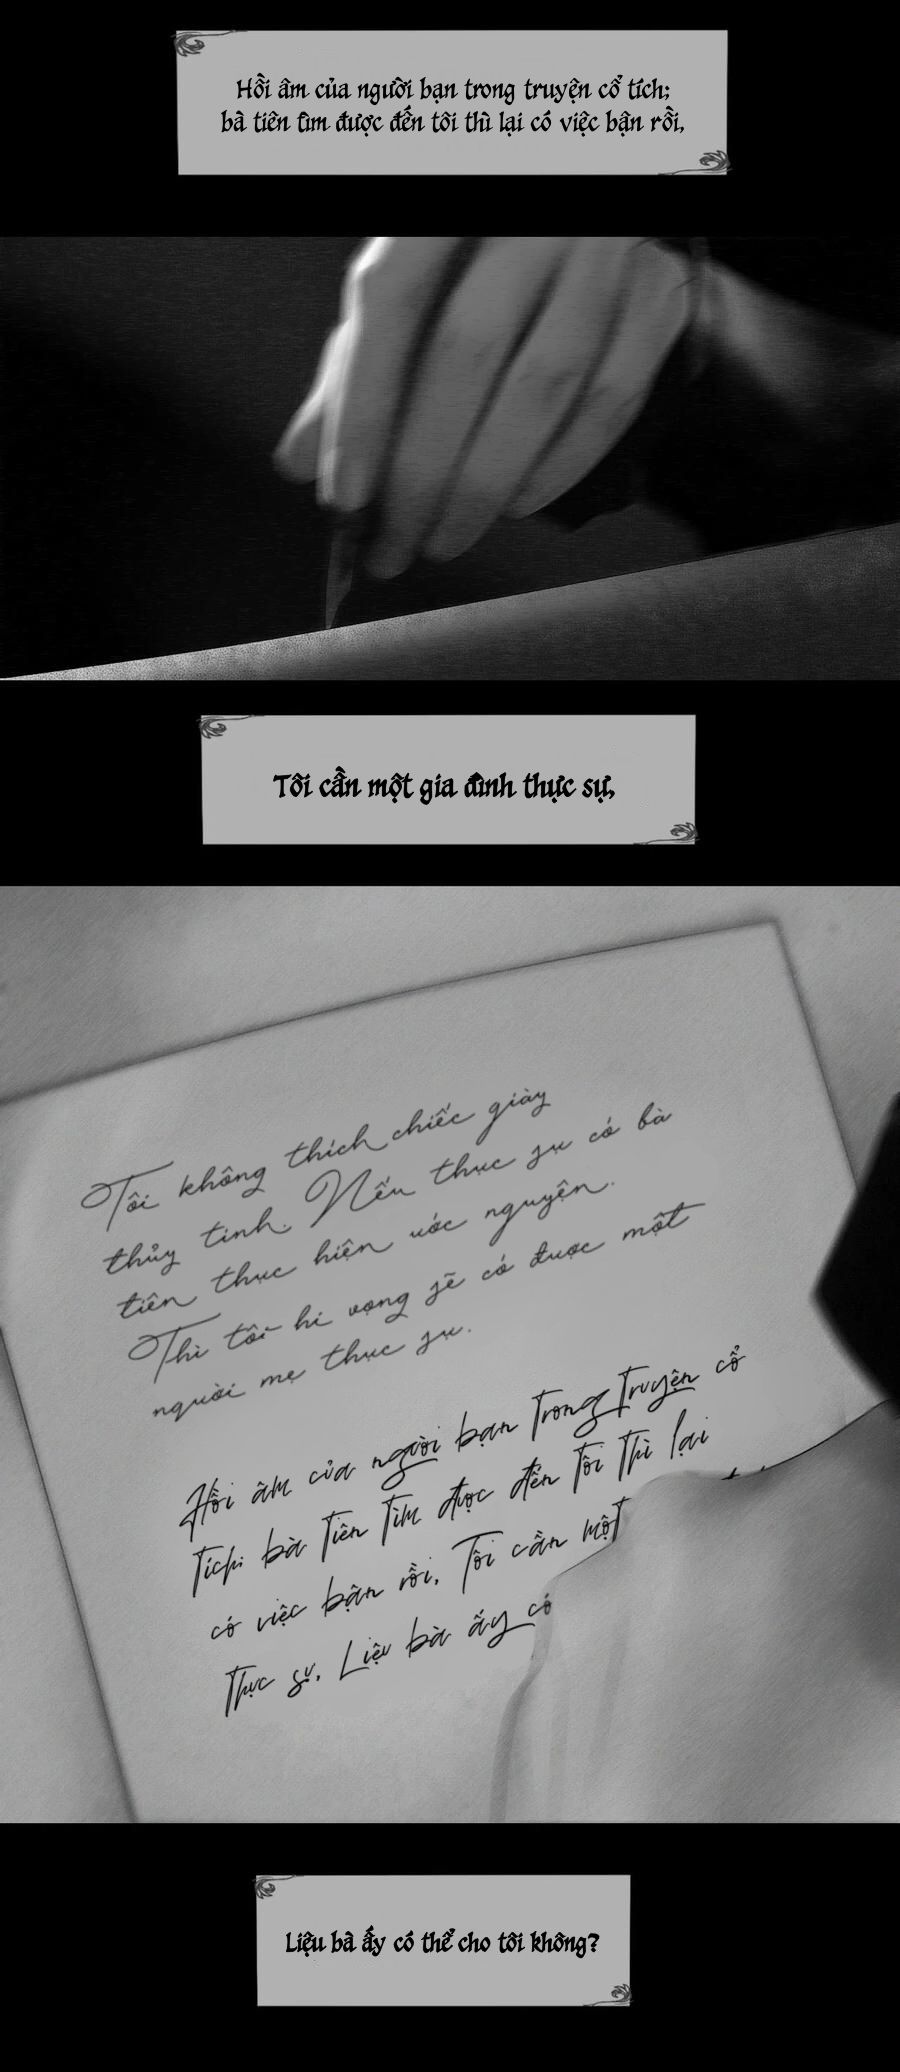 Hồi âm của người bạn trong truyện cổ tích;
bà tiên tìm được đến tôi thì lại có việc bận rồi,
Tôi cần một gia đình thực sự,
Tôi không thích chiếc giày
thủy tinh. Nếu thực sự có bà
tiên thực hiện ước nguyện.
Thì tôi hi vọng sẽ có được một
người mẹ thực sự.
Hồi âm của người bạn trong truyện cổ
tích; bà tiên tìm được đến tôi thì lại
có việc bận rồi, Tôi cần một
thực sự, Liệu bà ấy có
Liệu bà ấy có thể cho tôi không?